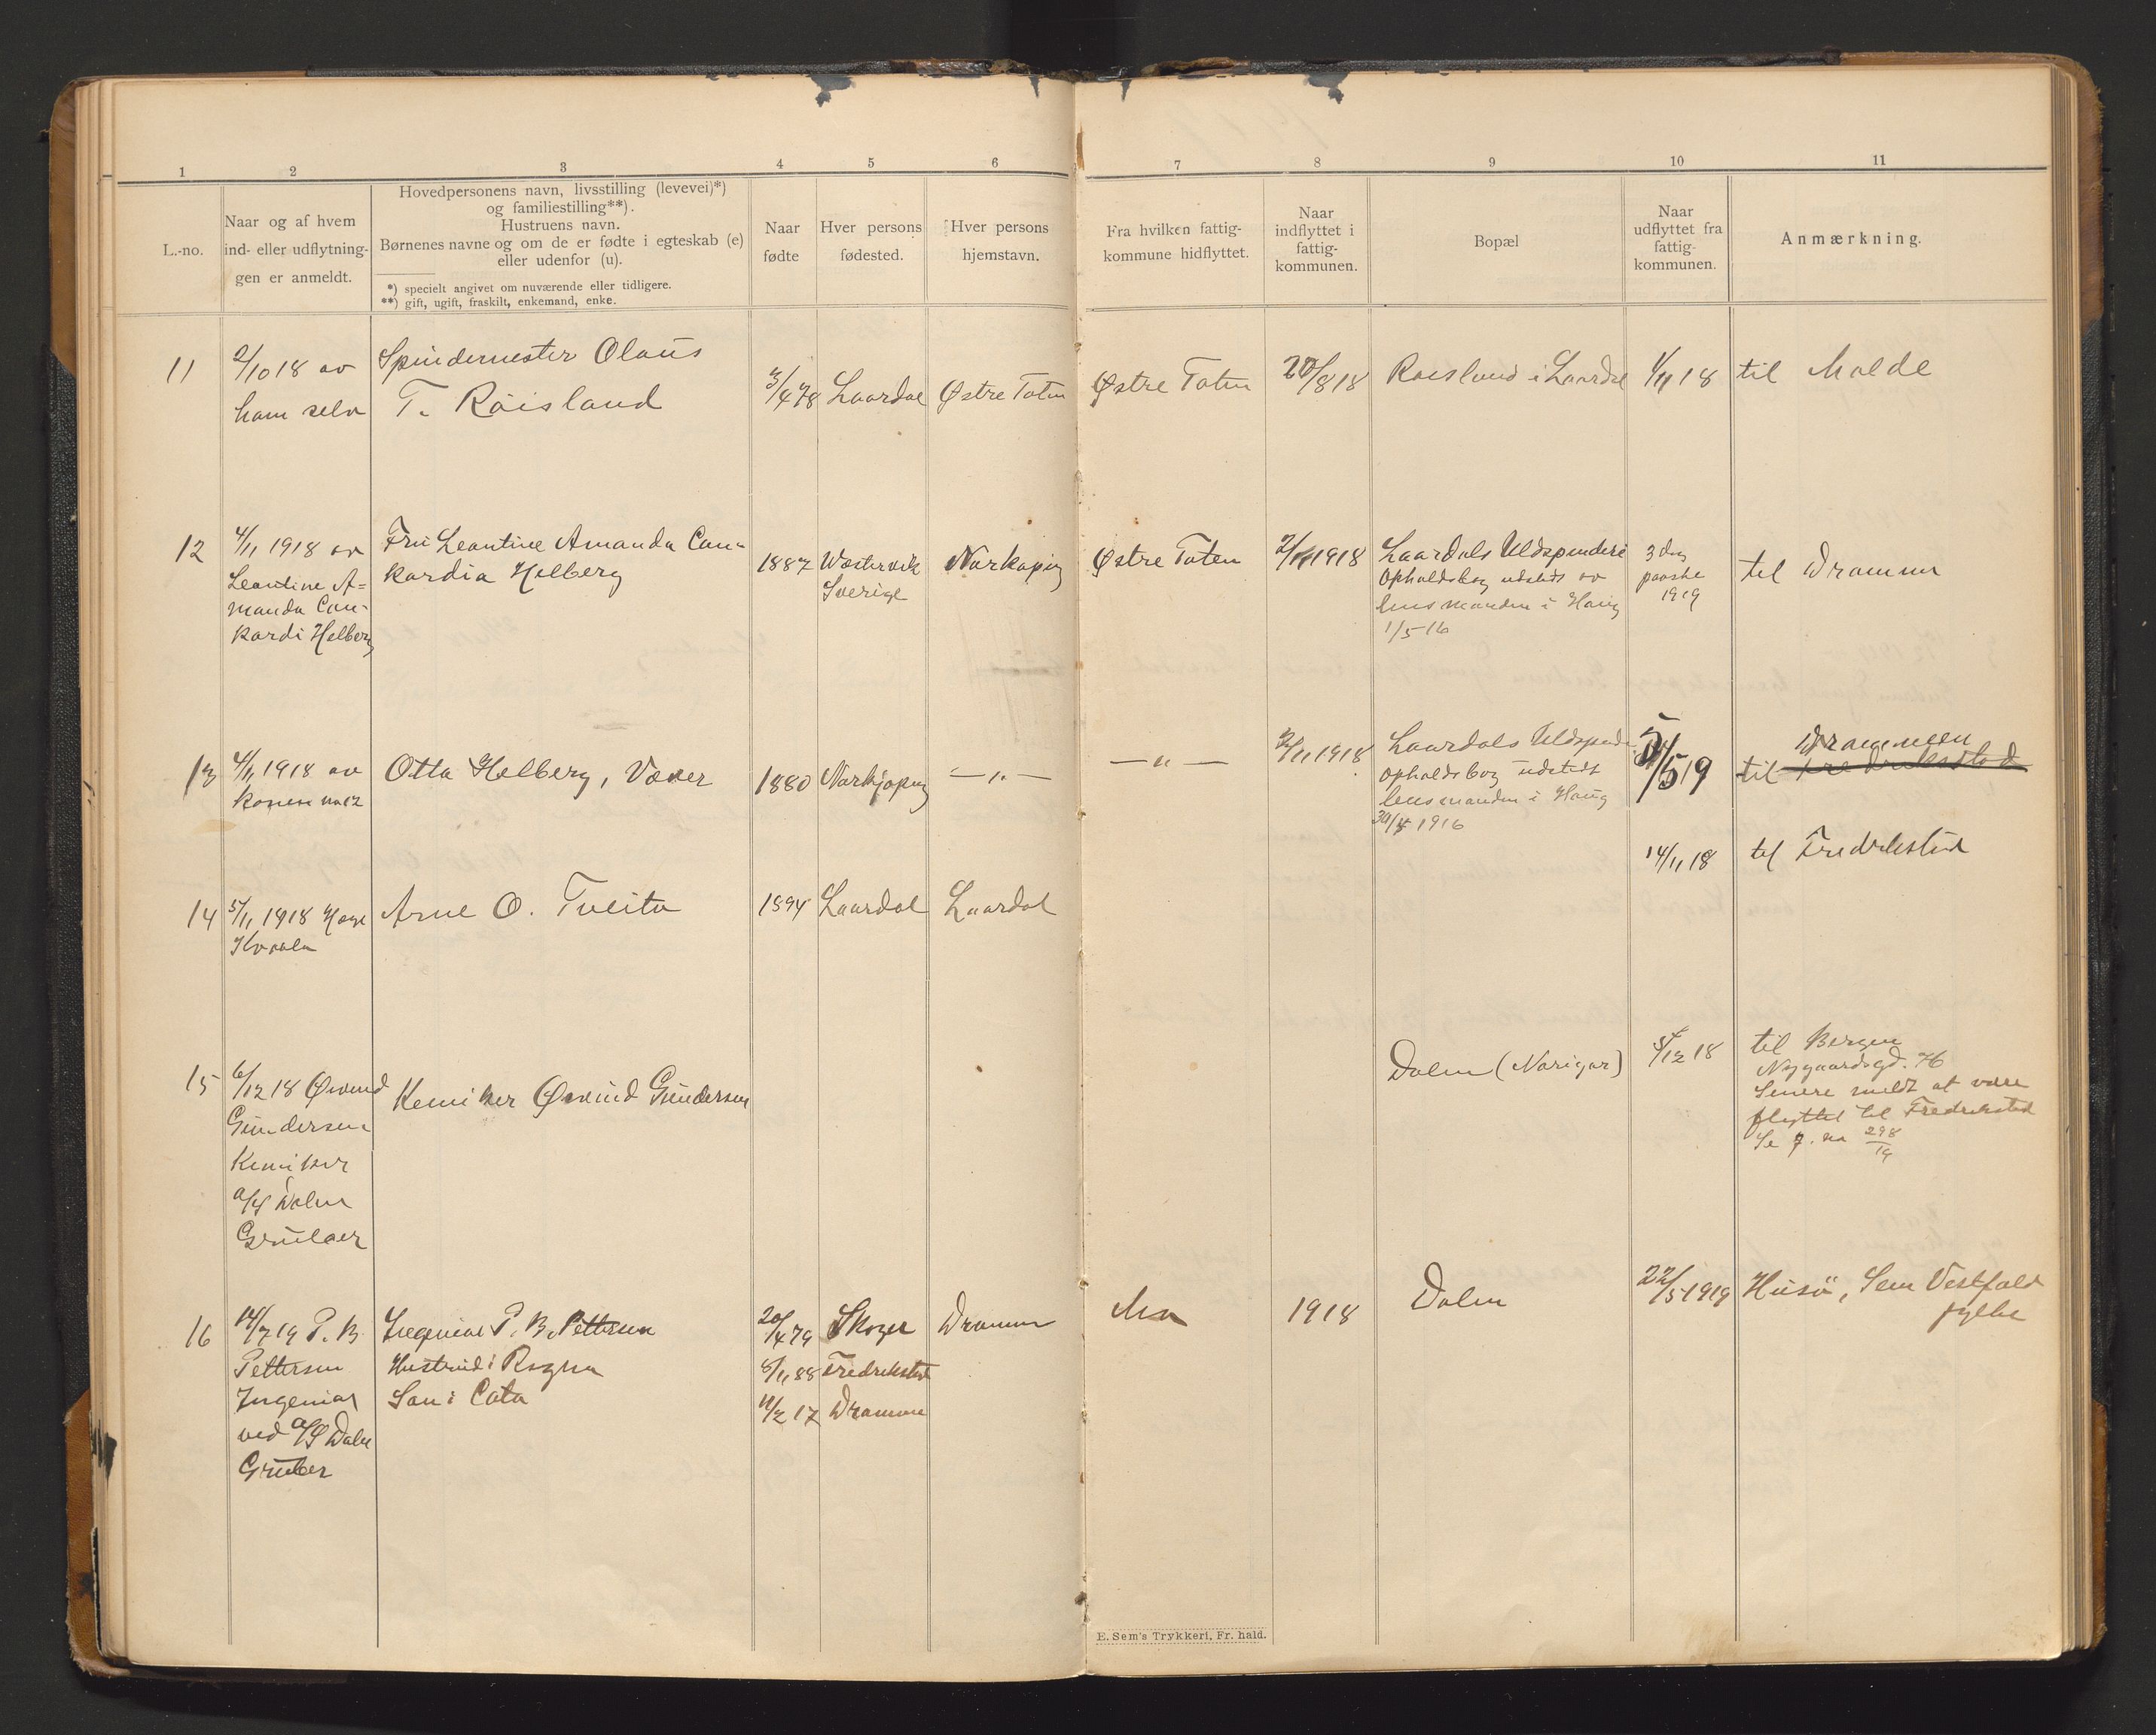 1 2 3 4 5 6 7 8 9 10 11
L.-no.
Naar og af hvem
ind- eller udflytning-
gen er anmeldt.
Hovedpersonens navn, livsstilling (levevei)*)
og familiestilling**).
Hustruens navn.
Børnenes navne og om de er fødte i egteskab (e)
eller udenfor (u).
*) specielt angivet om nuværende eller tidligere.
**) gift, ugift, fraskilt, enkemand, enke.
Naar
fødte
Hver persons
fødested.
Hver persons
hjemstavn.
Fra hvilken fattig-
kommune hidflyttet.
Naar
indflyttet i
fattig-
kommunen.
Bopæl
Naar
udflyttet fra
fattig-
kommunen.
Anmærkning.
11
2/10 18 av
ham selv
Spindemester Olaus
T. Røisland
3/4 78
Laardal
Østre Toten
Østre Toten
20/8 18
Røisland i Laardal
1/11 18
til Molde
12
4/11 1918 av
Leontine A=
manda Con-
kordi Helberg
Fru Leontine Amanda Con-
kordia Helberg
1887
Westervik
Sverige
Norkøping
Østre Toten
2/11 1918
Laardals Uldspinderi
Opholdsbog udstedt av
lensmanden i Haug
1/5 16
3 dag
paaske
1919
til Drammen
13
4/11 1918 av
konen no 12
Otto Helberg, Væver
1880
Norkjøping
— „ —
— „ —
2/11 1918
Laardals Uldspinderi
Opholdsbog udstedt
lensmanden i Haug
30/4 1916
5/5 19
Drammen
til Fredrikstad
14/11 18
til Fredrikstad
14
5/11 1918 Hege
Kvaale
Arne O. Tveito
1894
Laardal
Laardal
15
6/12 18 Øivind
Gundersen
Kemiker
A/S Dalen
Gruber
Kemiker Øivind Gundersen
Dalen (Norigar)
5/12 18
til Bergen
Nygaardsgd. 76
Senere meldt at være
flyttet til Fredrikstad
Se j. no 298/19
16
14/7 19 P. B.
Pettersen
Ingeniør
ved A/S Dalen
Gruber
Ingeniør P. B. Pettersen
Hustrud: Ragna
Søn: Cato
20/4 79
8/11 88
11/2 17
Skoger
Fredrikstad
Drammen
Drammen
Mo
1918
Dalen
22/5 1919
Husö, Sem Vestfold
fylke
E. Sem's Trykkeri, Fr. hald.